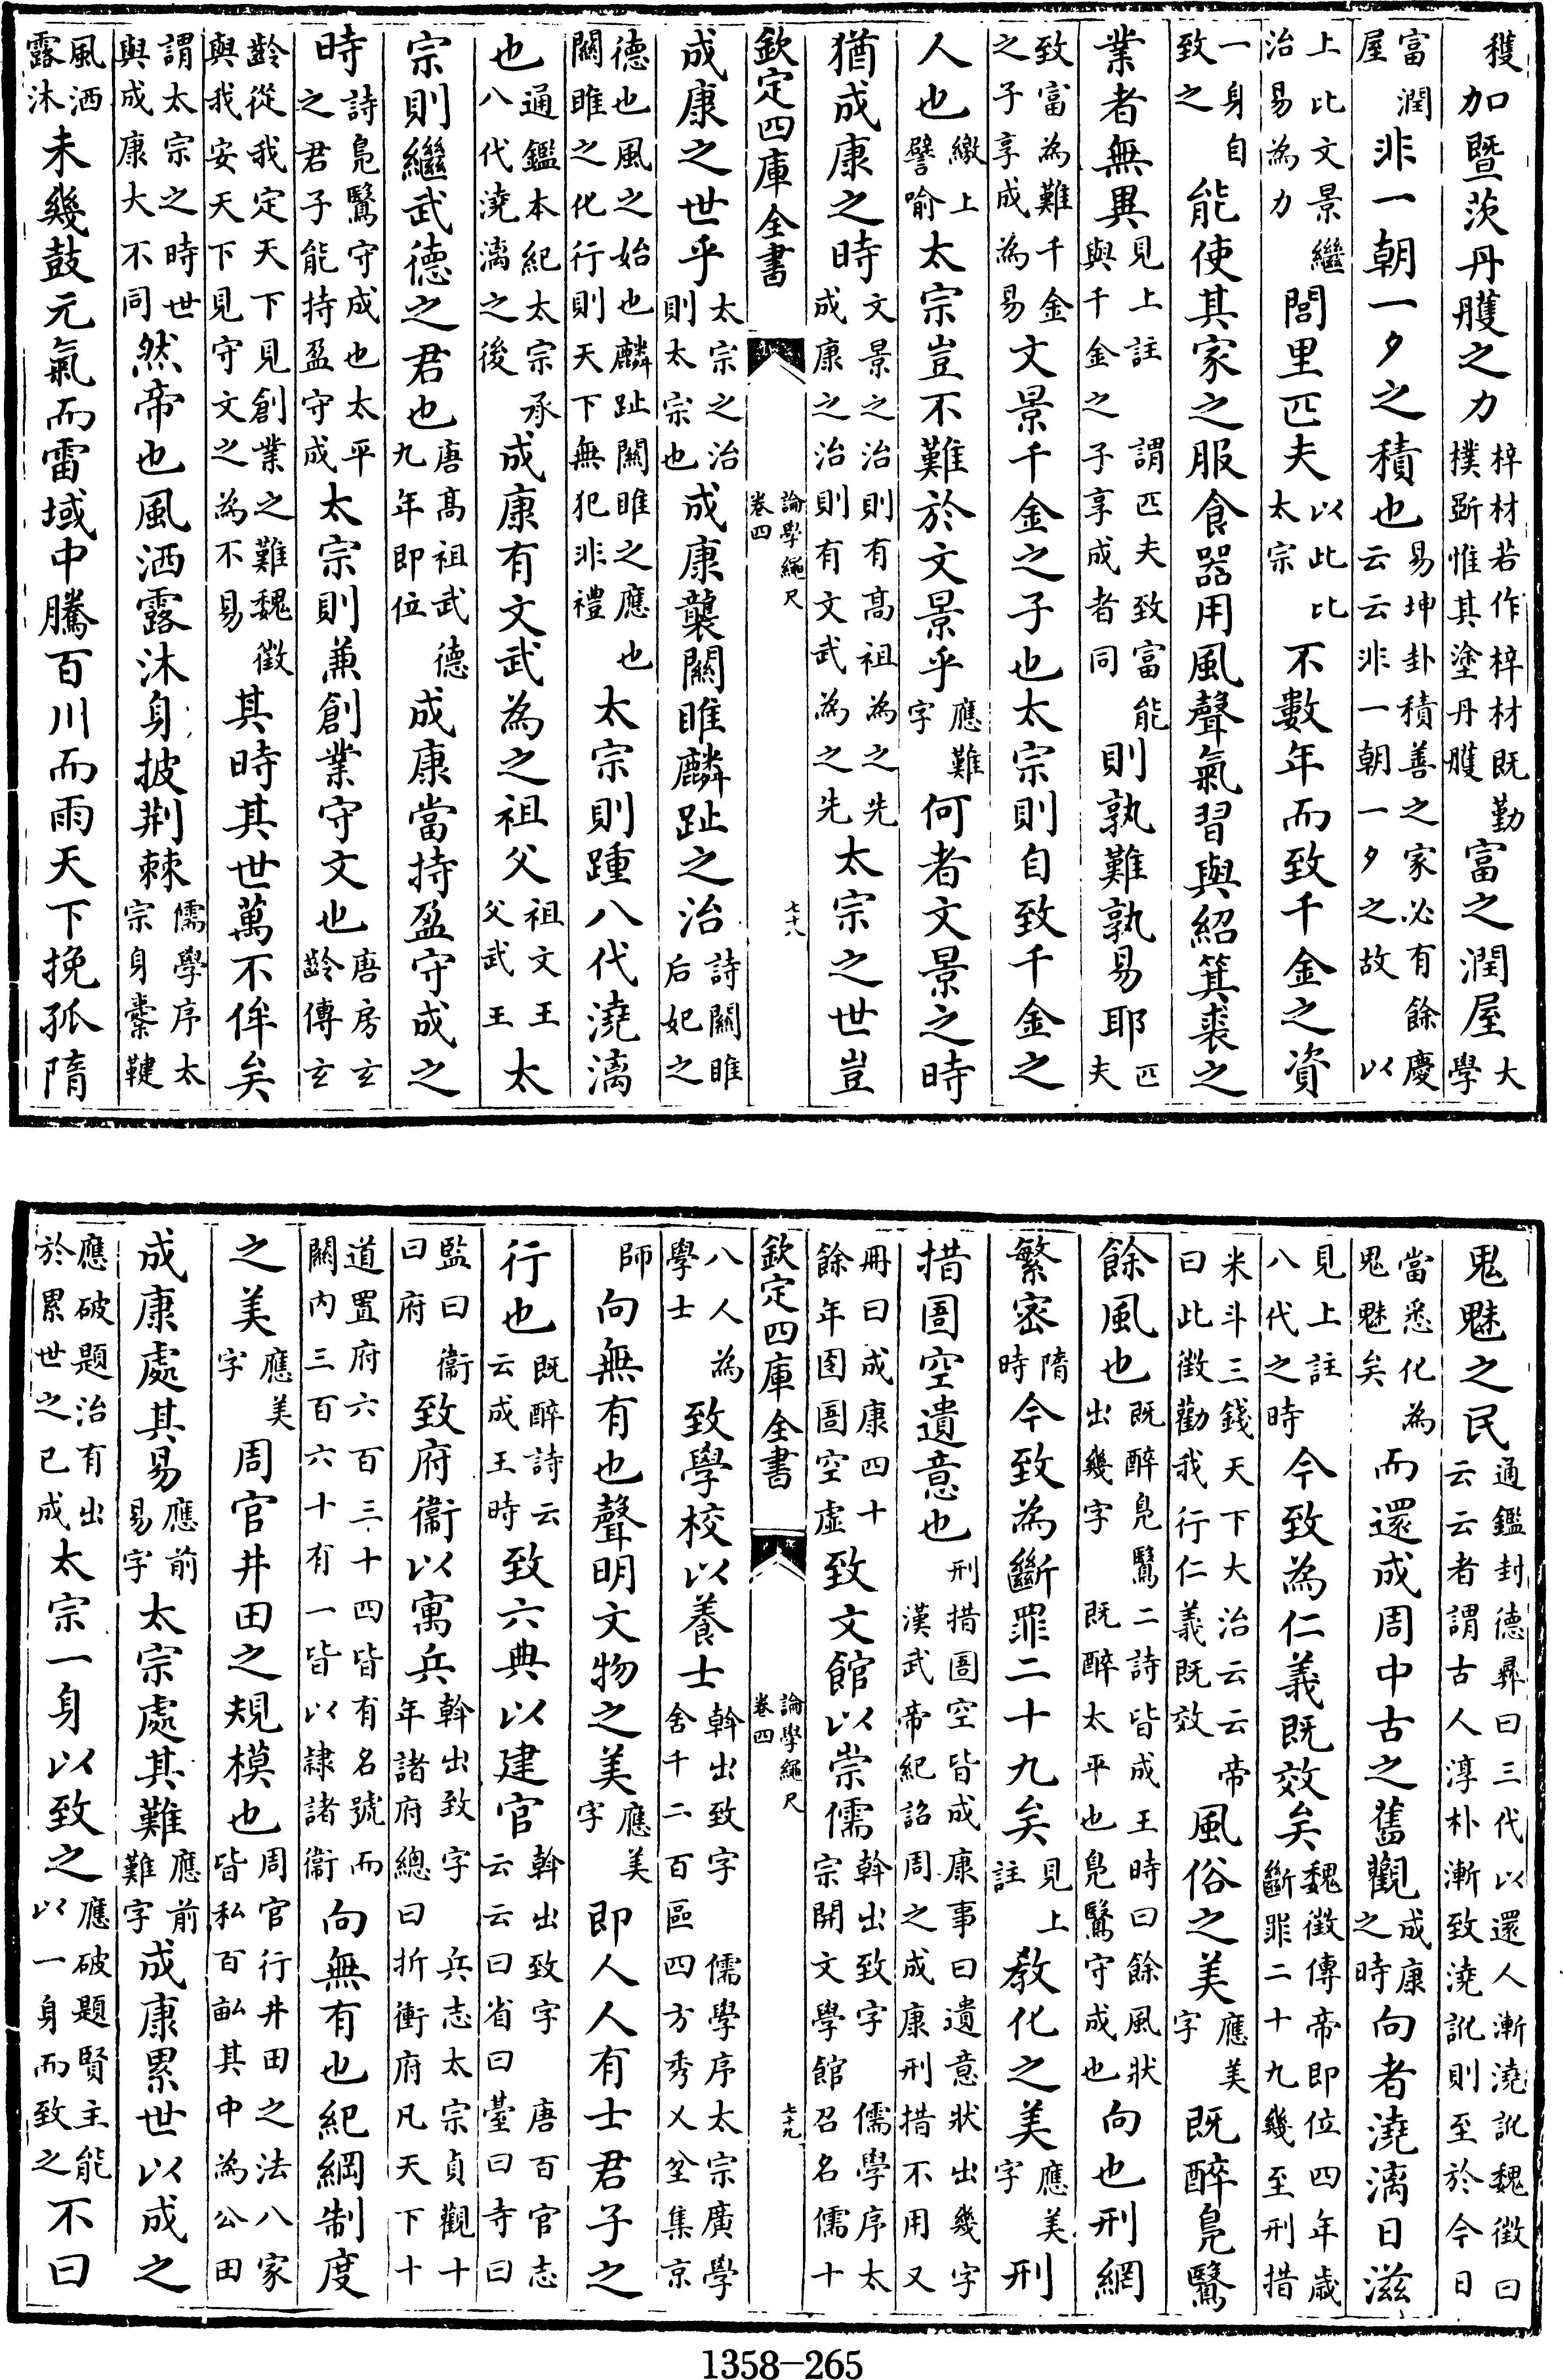 穫加暨茨丹雘之力梓材若作梓材既勤樸斲惟其塗丹雘富之潤屋大學
富潤屋非一朝一夕之積也易坤卦積善之家必有餘慶云云非一朝一夕之故以
上比文景繼治易為力閭里匹夫以此比太宗不數年而致千金之資
一身自致之能使其家之服食器用風聲氣習與紹箕裘之
業者無異見上註謂匹夫致富能與千金之子享成者同則孰難孰易耶匹夫
致富為難千金之子享成為易文景千金之子也太宗則自致千金之
人也繳上譬喻太宗豈不難於文景乎應難字何者文景之時
猶成康之時文景之治則有高祖為之先成康之治則有文武為之先太宗之世豈
欽定四庫全書 論學繩尺 卷四 七十八
成康之世乎太宗之治則太宗也成康襲關雎麟趾之治詩關雎后妃之
德也風之始也麟趾關雎之應也關雎之化行則天下無犯非禮太宗則踵八代澆漓
也通鑑本紀太宗承八代澆漓之後成康有文武為之祖父祖文王父武王太
宗則繼武德之君也唐高祖武德九年即位成康當持盈守成之
時詩鳧鷖守成也太平之君子能持盈守成太宗則兼創業守文也唐房玄齡傳玄
齡從我定天下見創業之難魏徵與我安天下見守文之為不易其時其世萬不侔矣
謂太宗之時世與成康大不同然帝也風洒露沐身披荆棘儒學序太宗身櫜鞬
風洒露沐未幾鼓元氣而雷域中騰百川而雨天下挽孤隋
鬼魅之民通鑑封德彛曰三代以還人漸澆訛魏徵曰云云者謂古人淳朴漸致澆訛則至於今日
當悉化為鬼魅矣而還成周中古之舊觀成康之時向者澆漓日滋
見上註八代之時今致為仁義既效矣魏徵傳帝即位四年歲斷罪二十九幾至刑措
米斗三錢天下大治云云帝曰此徵勸我行仁義既效風俗之美應美字既醉鳧鷖
餘風也既醉鳧鷖二詩皆成王時曰餘風狀出幾字既醉太平也鳧鷖守成也向也刑網
繁密隋時今致為斷罪二十九矣見上註教化之美應美字刑
措囹空遺意也刑措囹空皆成康事曰遺意狀出幾字漢武帝紀詔周之成康刑措不用又
冊曰成康四十餘年囹圄空虛致文館以崇儒斡出致字儒學序太宗開文學館召名儒十
欽定四庫全書 論學繩尺 卷四 七十九
八人為學士致學校以養士斡出致字儒學序太宗廣學舍千二百區四方秀乂坌集京
師向無有也聲明文物之美應美字即人人有士君子之
行也既醉詩云云成王時致六典以建官斡出致字唐百官志云云曰省曰臺曰寺曰
監曰衛曰府致府衛以寓兵斡出致字兵志太宗貞觀十年諸府總曰折衝府凡天下十
道置府六百三十四皆有名號而關內三百六十有一皆以隸諸衛向無有也紀綱制度
之美應美字周官井田之規模也周官行井田之法八家皆私百畝其中為公田
成康處其易應前易字太宗處其難應前難字成康累世以成之
應破題治有出於累世之已成太宗一身以致之應破題賢主能以一身而致之不曰
1358-265